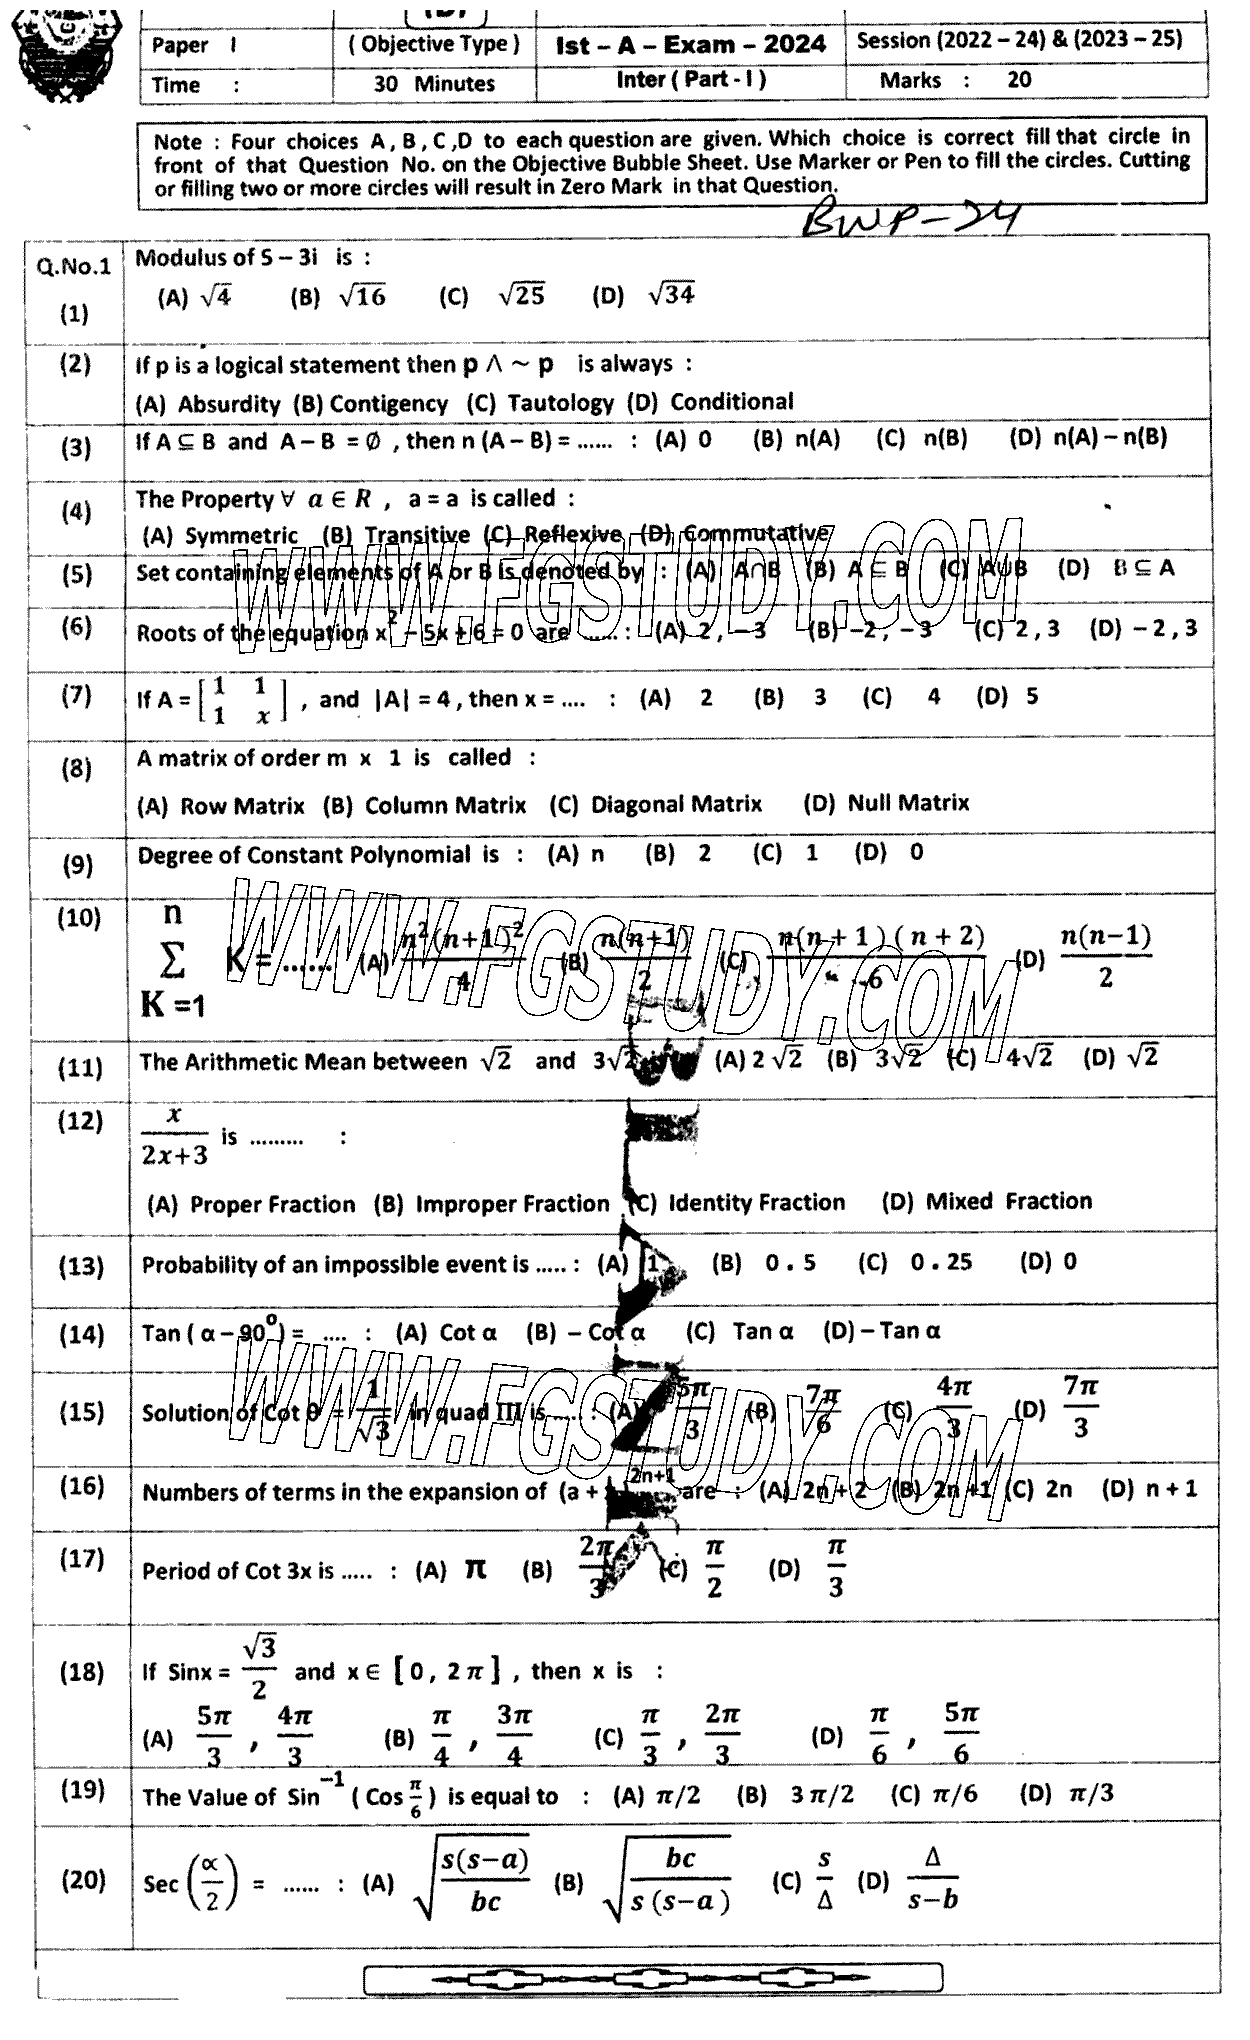 Paper I (Objective Type) Ist – A – Exam – 2024 Session (2022 – 24) & (2023 – 25)
Time : 30 Minutes Inter (Part - I) Marks : 20
Note : Four choices A, B, C, D to each question are given. Which choice is correct fill that circle in
front of that Question No. on the Objective Bubble Sheet. Use Marker or Pen to fill the circles. Cutting
or filling two or more circles will result in Zero Mark in that Question.
BWP-24
Q.No.1
(1) Modulus of 5 – 3i is :
(A) √4 (B) √16 (C) √25 (D) √34
(2) If p is a logical statement then p ∧ ~ p is always :
(A) Absurdity (B) Contigency (C) Tautology (D) Conditional
(3) If A ⊆ B and A – B = ∅ , then n (A – B) = ...... : (A) 0 (B) n(A) (C) n(B) (D) n(A) – n(B)
(4) The Property ∀ a ∈ R , a = a is called :
(A) Symmetric (B) Transitive (C) Reflexive (D) Commutative
(5) Set containing elements of A or B is denoted by : (A) A∩B (B) A ⊆ B (C) A∪B (D) B ⊆ A
WWW.FGSTUDY.COM
(6) Roots of the equation x² – 5x + 6 = 0 are ...... : (A) 2 , – 3 (B) –2 , – 3 (C) 2 , 3 (D) – 2 , 3
(7) If A = [1 1
1 x] , and |A| = 4 , then x = .... : (A) 2 (B) 3 (C) 4 (D) 5
(8) A matrix of order m x 1 is called :
(A) Row Matrix (B) Column Matrix (C) Diagonal Matrix (D) Null Matrix
(9) Degree of Constant Polynomial is : (A) n (B) 2 (C) 1 (D) 0
WWW.FGSTUDY.COM
(10) n
Σ K = ...... (A) n²(n+1)²/4 (B) n(n+1)/2 (C) n(n + 1)(n + 2)/6 (D) n(n–1)/2
K =1
(11) The Arithmetic Mean between √2 and 3√2 (A) 2 √2 (B) 3√2 (C) 4√2 (D) √2
(12) x/2x+3 is ......... :
(A) Proper Fraction (B) Improper Fraction (C) Identity Fraction (D) Mixed Fraction
(13) Probability of an impossible event is ..... : (A) 1 (B) 0 . 5 (C) 0 . 25 (D) 0
(14) Tan ( α – 90°) = .... : (A) Cot α (B) – Cot α (C) Tan α (D) – Tan α
WWW.FGSTUDY.COM
(15) Solution of Cot θ = 1/√3 in quad III is ..... : (A) 5π/3 (B) 7π/6 (C) 4π/3 (D) 7π/3
(16) Numbers of terms in the expansion of (a + 2n+1 are : (A) 2n + 2 (B) 2n +1 (C) 2n (D) n + 1
(17) Period of Cot 3x is ..... : (A) π (B) 2π/3 (C) π/2 (D) π/3
(18) If Sinx = √3/2 and x ∈ [ 0 , 2 π ] , then x is :
(A) 5π/3 , 4π/3 (B) π/4 , 3π/4 (C) π/3 , 2π/3 (D) π/6 , 5π/6
(19) The Value of Sin⁻¹ ( Cos π/6 ) is equal to : (A) π/2 (B) 3 π/2 (C) π/6 (D) π/3
(20) Sec (∝/2) = ...... : (A) √(s(s–a)/bc) (B) √(bc/s (s–a)) (C) s/Δ (D) Δ/s–b